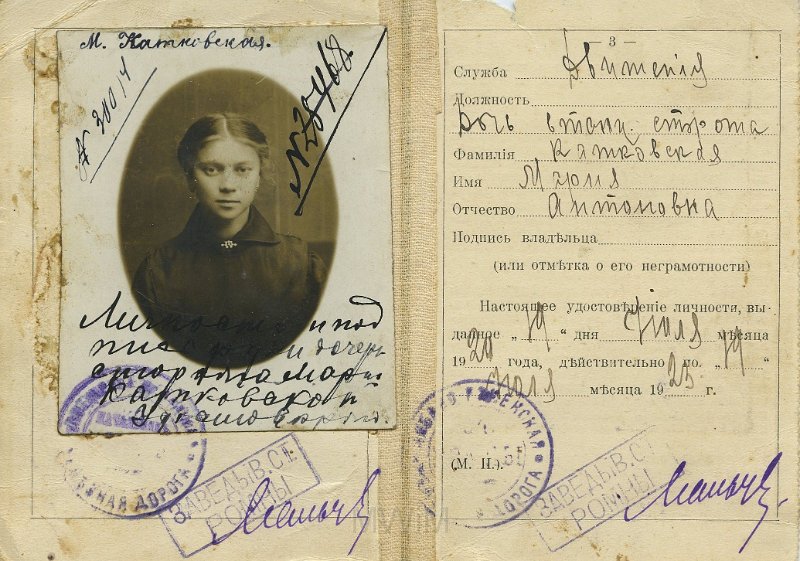 М. Катковская.
№ 20014
№ 20468
Личность и под
дочери
сторожа Марии
Катковской
удостоверяю.
ДОРОГА
ЗАВѢДЫВ.СТ.
РОМНЫ
— 3 —
Служба Движенія
Должность
Дочь станц. сторожа
Фамилія Катковская
Имя Марія
Отчество Антоновна
Подпись владѣльца
(или отмѣтка о его неграмотности)
Настоящее удостовѣреніе личности, вы-
данное „19“ дня Іюля мѣсяца
1920 года, дѣйствительно по „19“
Іюля мѣсяца 1925 г.
(М. П.)
РОМЕНСКАЯ
ДОРОГА
ЗАВѢДЫВ.СТ.
РОМНЫ